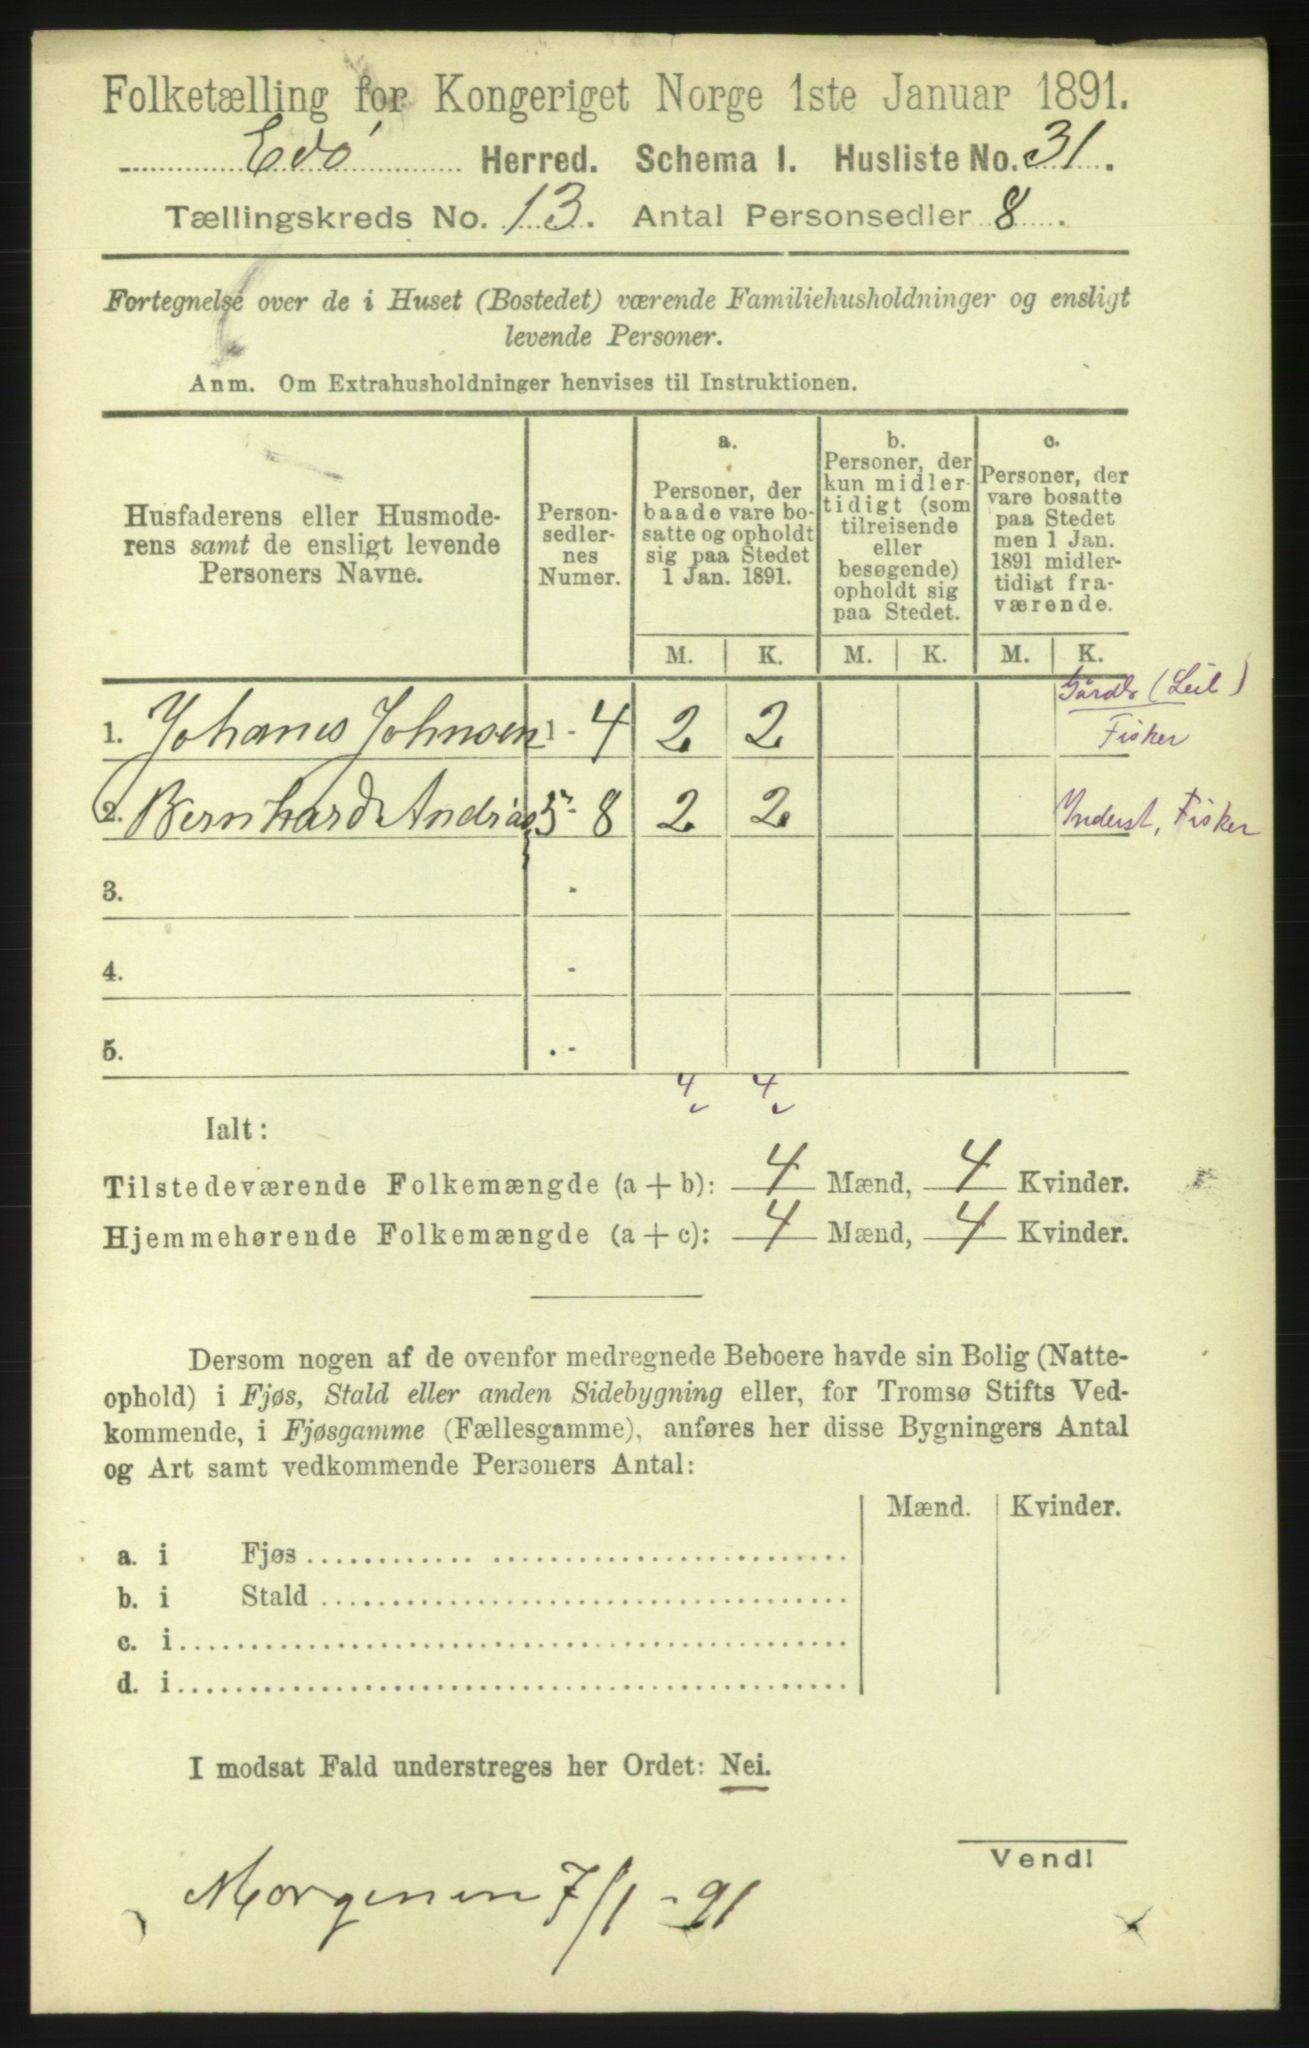 Folketælling for Kongeriget Norge 1ste Januar 1891.
Edö Herred. Schema I. Husliste No. 31.
Tællingskreds No. 13. Antal Personsedler 8.
Fortegnelse over de i Huset (Bostedet) værende Familiehusholdninger og ensligt
levende Personer.
Anm. Om Extrahusholdninger henvises til Instruktionen.
Husfaderens eller Husmode-
rens samt de ensligt levende
Personers Navne.
Person-
sedler-
nes
Numer.
a.
Personer, der
baade vare bo-
satte og opholdt
sig paa Stedet
1 Jan. 1891.
b.
Personer, der
kun midler-
tidigt (som
tilreisende
eller
besøgende)
opholdt sig
paa Stedet.
c.
Personer, der
vare bosatte
paa Stedet
men 1 Jan.
1891 midler-
tidigt fra-
værende.
M. K. M. K. M. K.
1. Johanes Johnsen 1 - 4 2 2 Gårdb (Leil)
Fisker
2. Bernhard Andrias 5 - 8 2 2 Inderst, Fisker
3. -
4. -
5. . -
4 4
Ialt:
Tilstedeværende Folkemængde (a + b): 4 Mænd, 4 Kvinder.
Hjemmehørende Folkemængde (a + c): 4 Mænd, 4 Kvinder.
Dersom nogen af de ovenfor medregnede Beboere havde sin Bolig (Natte-
ophold) i Fjøs, Stald eller anden Sidebygning eller, for Tromsø Stifts Ved-
kommende, i Fjøsgamme (Fællesgamme), anføres her disse Bygningers Antal
og Art samt vedkommende Personers Antal:
Mænd. Kvinder.
a. i Fjøs
b. i Stald
c. i
d. i
I modsat Fald understreges her Ordet: Nei.
Vend!
Morgenen 7/1 - 91